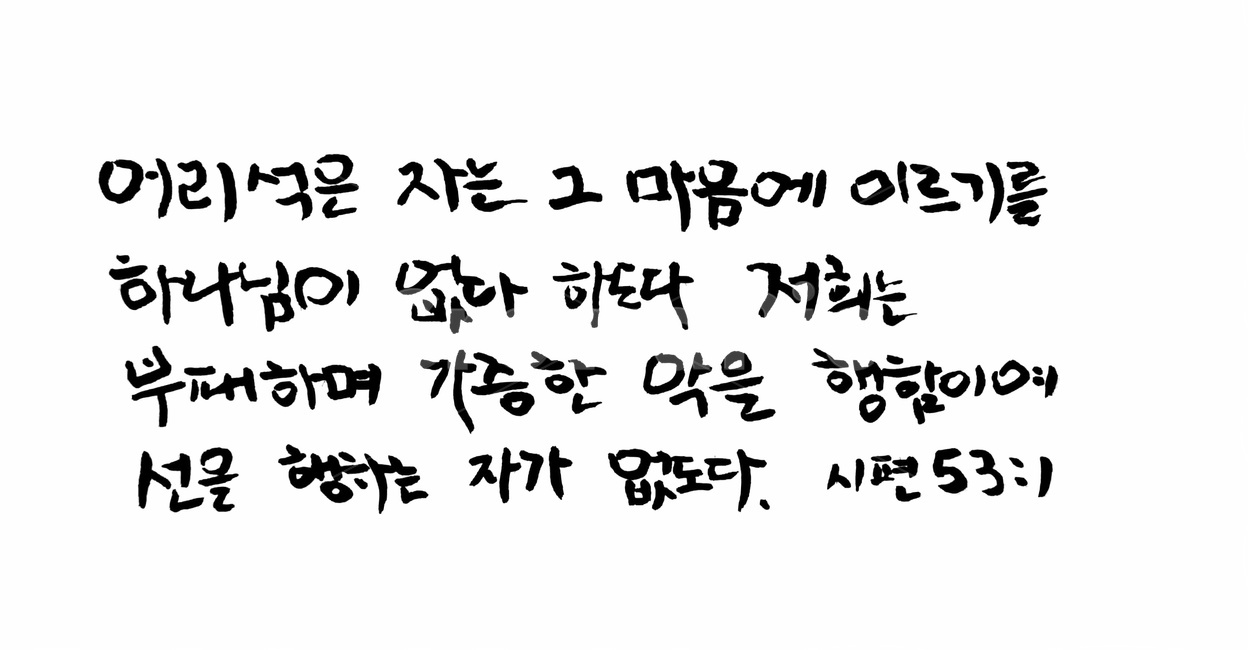 어리석은 자는 그 마음에 이르기를
하나님이 없다 하도다 저희는
부패하며 가증한 악을 행함이여
선을 행하는 자가 없도다. 시편 53:1